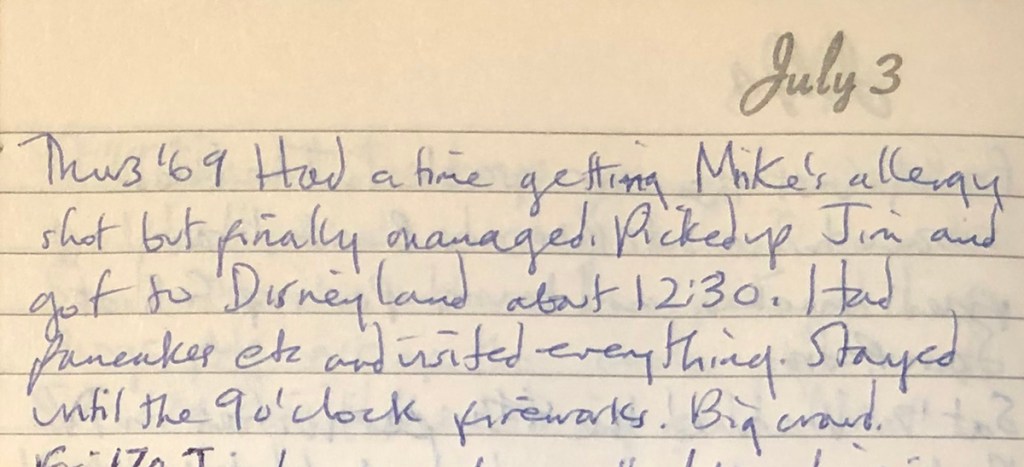 July 3
Thurs '69 Had a time getting Mike's allergy
shot but finally managed. Picked up Jim and
got to Disneyland about 12:30. Had
pancakes etc and visited everything. Stayed
until the 9 o'clock fireworks. Big crowd.